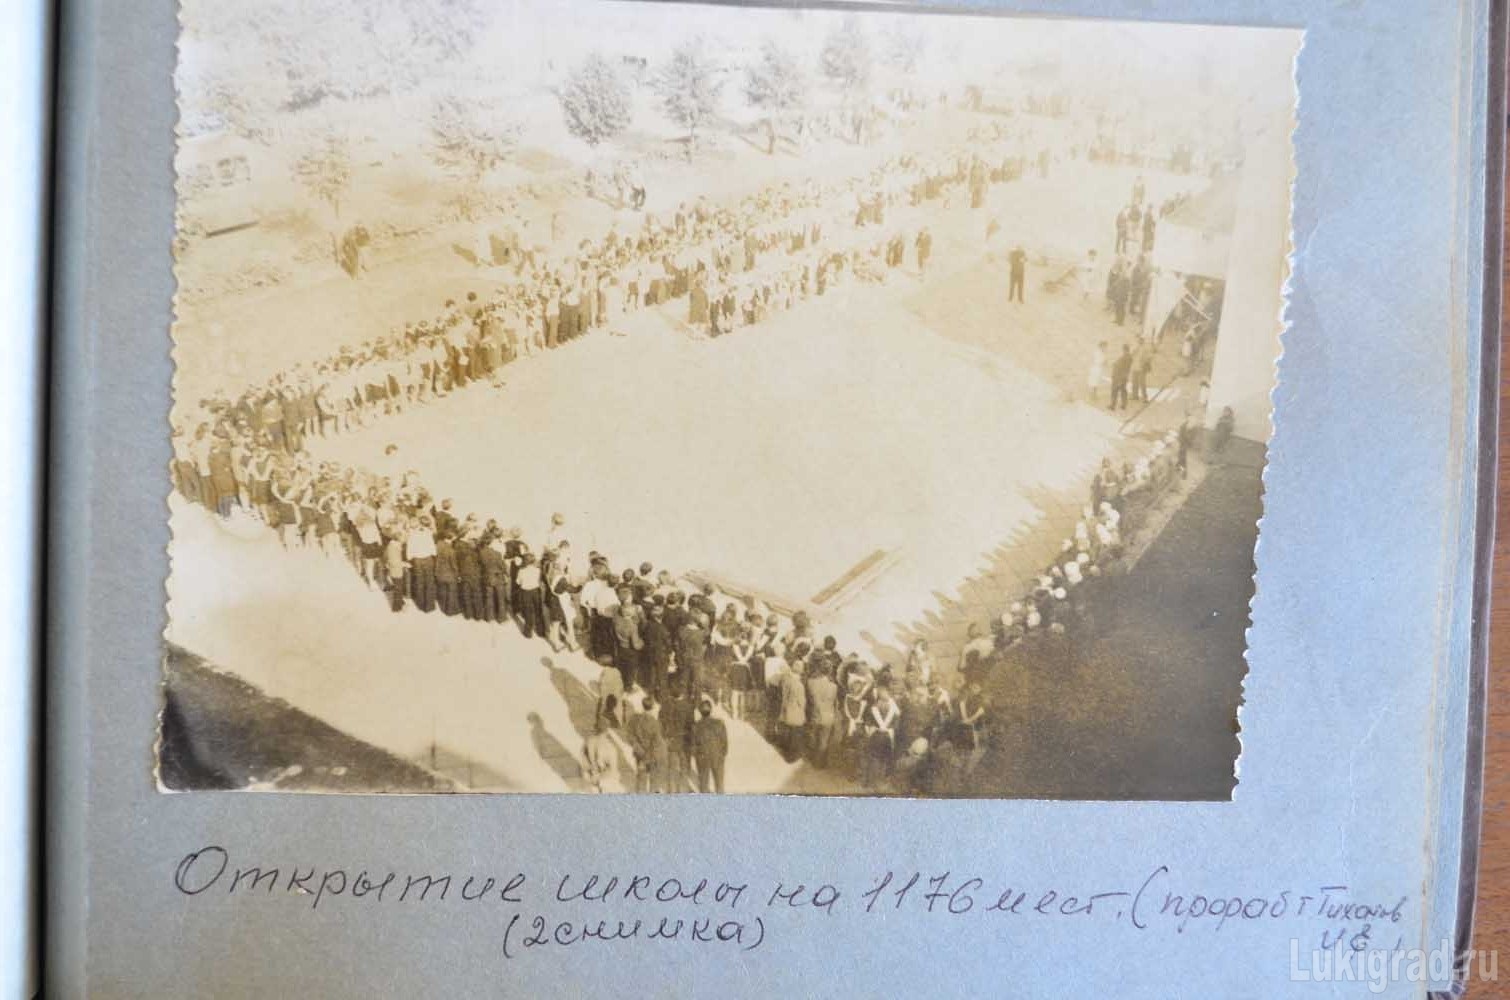 Открытие школы на 1176 мест. (прораб т Тихонов
(2 снимка) И Е )
Lukigrad.ru